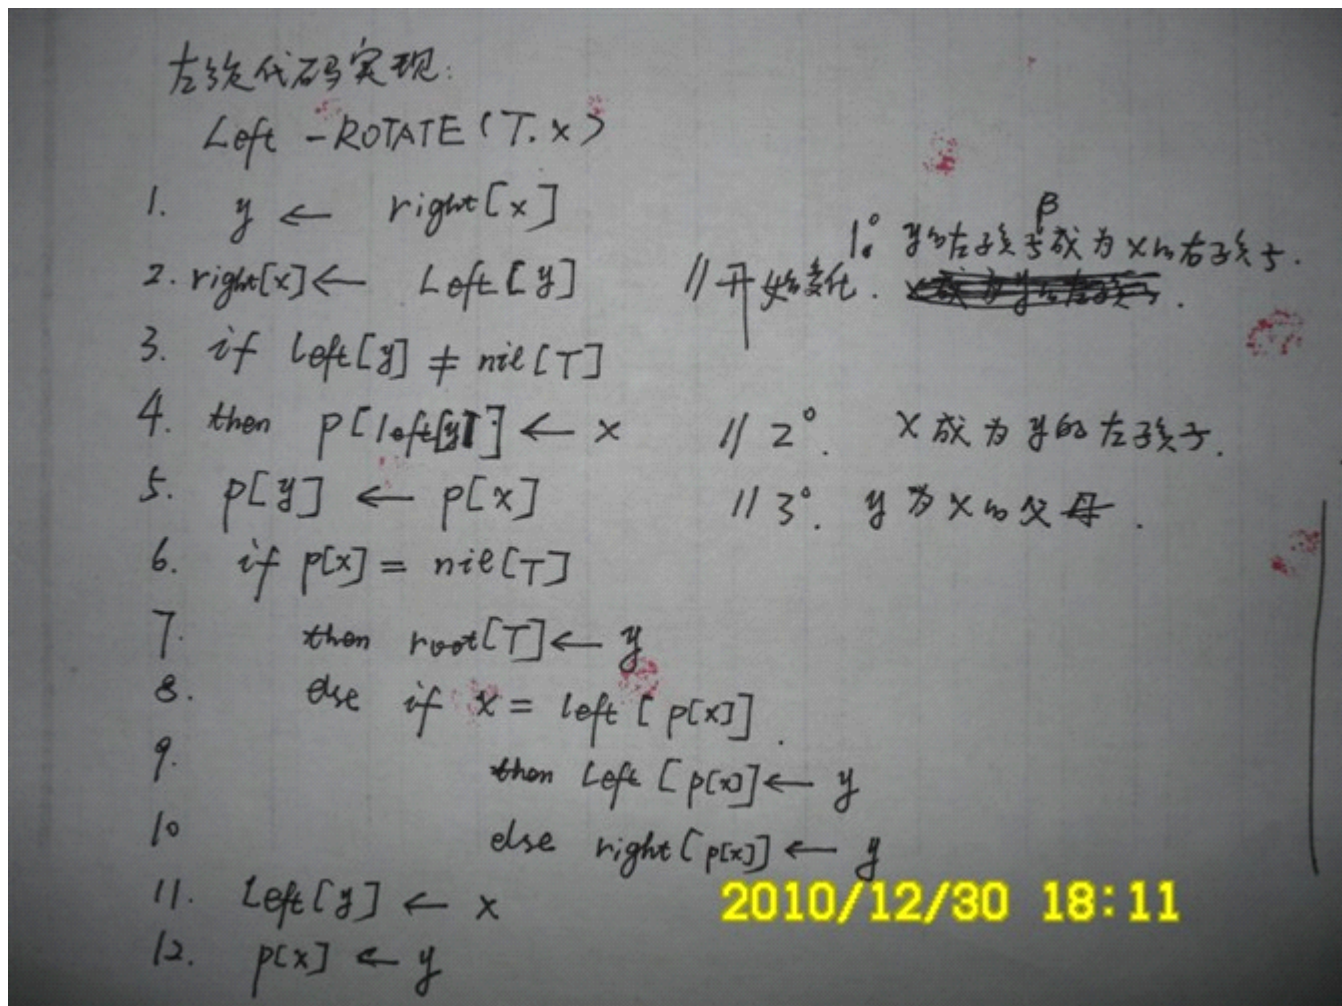 左旋代码实现:
Left -ROTATE (T. x)
1. y ← right[x]
β
1° y的左孩子成为x的右孩子.
2. right[x] ← Left[y] // 开始变化.
3. if left[y] ≠ nil[T]
4. then p[left[y]] ← x // 2°. x成为y的左孩子.
5. p[y] ← p[x] // 3°. y为x的父母.
6. if p[x] = nil[T]
7. then root[T] ← y
8. else if x = left [p[x]]
9. then Left [p[x]] ← y
10 else right[p[x]] ← y
11. Left[y] ← x
12. p[x] ← y
2010/12/30 18:11